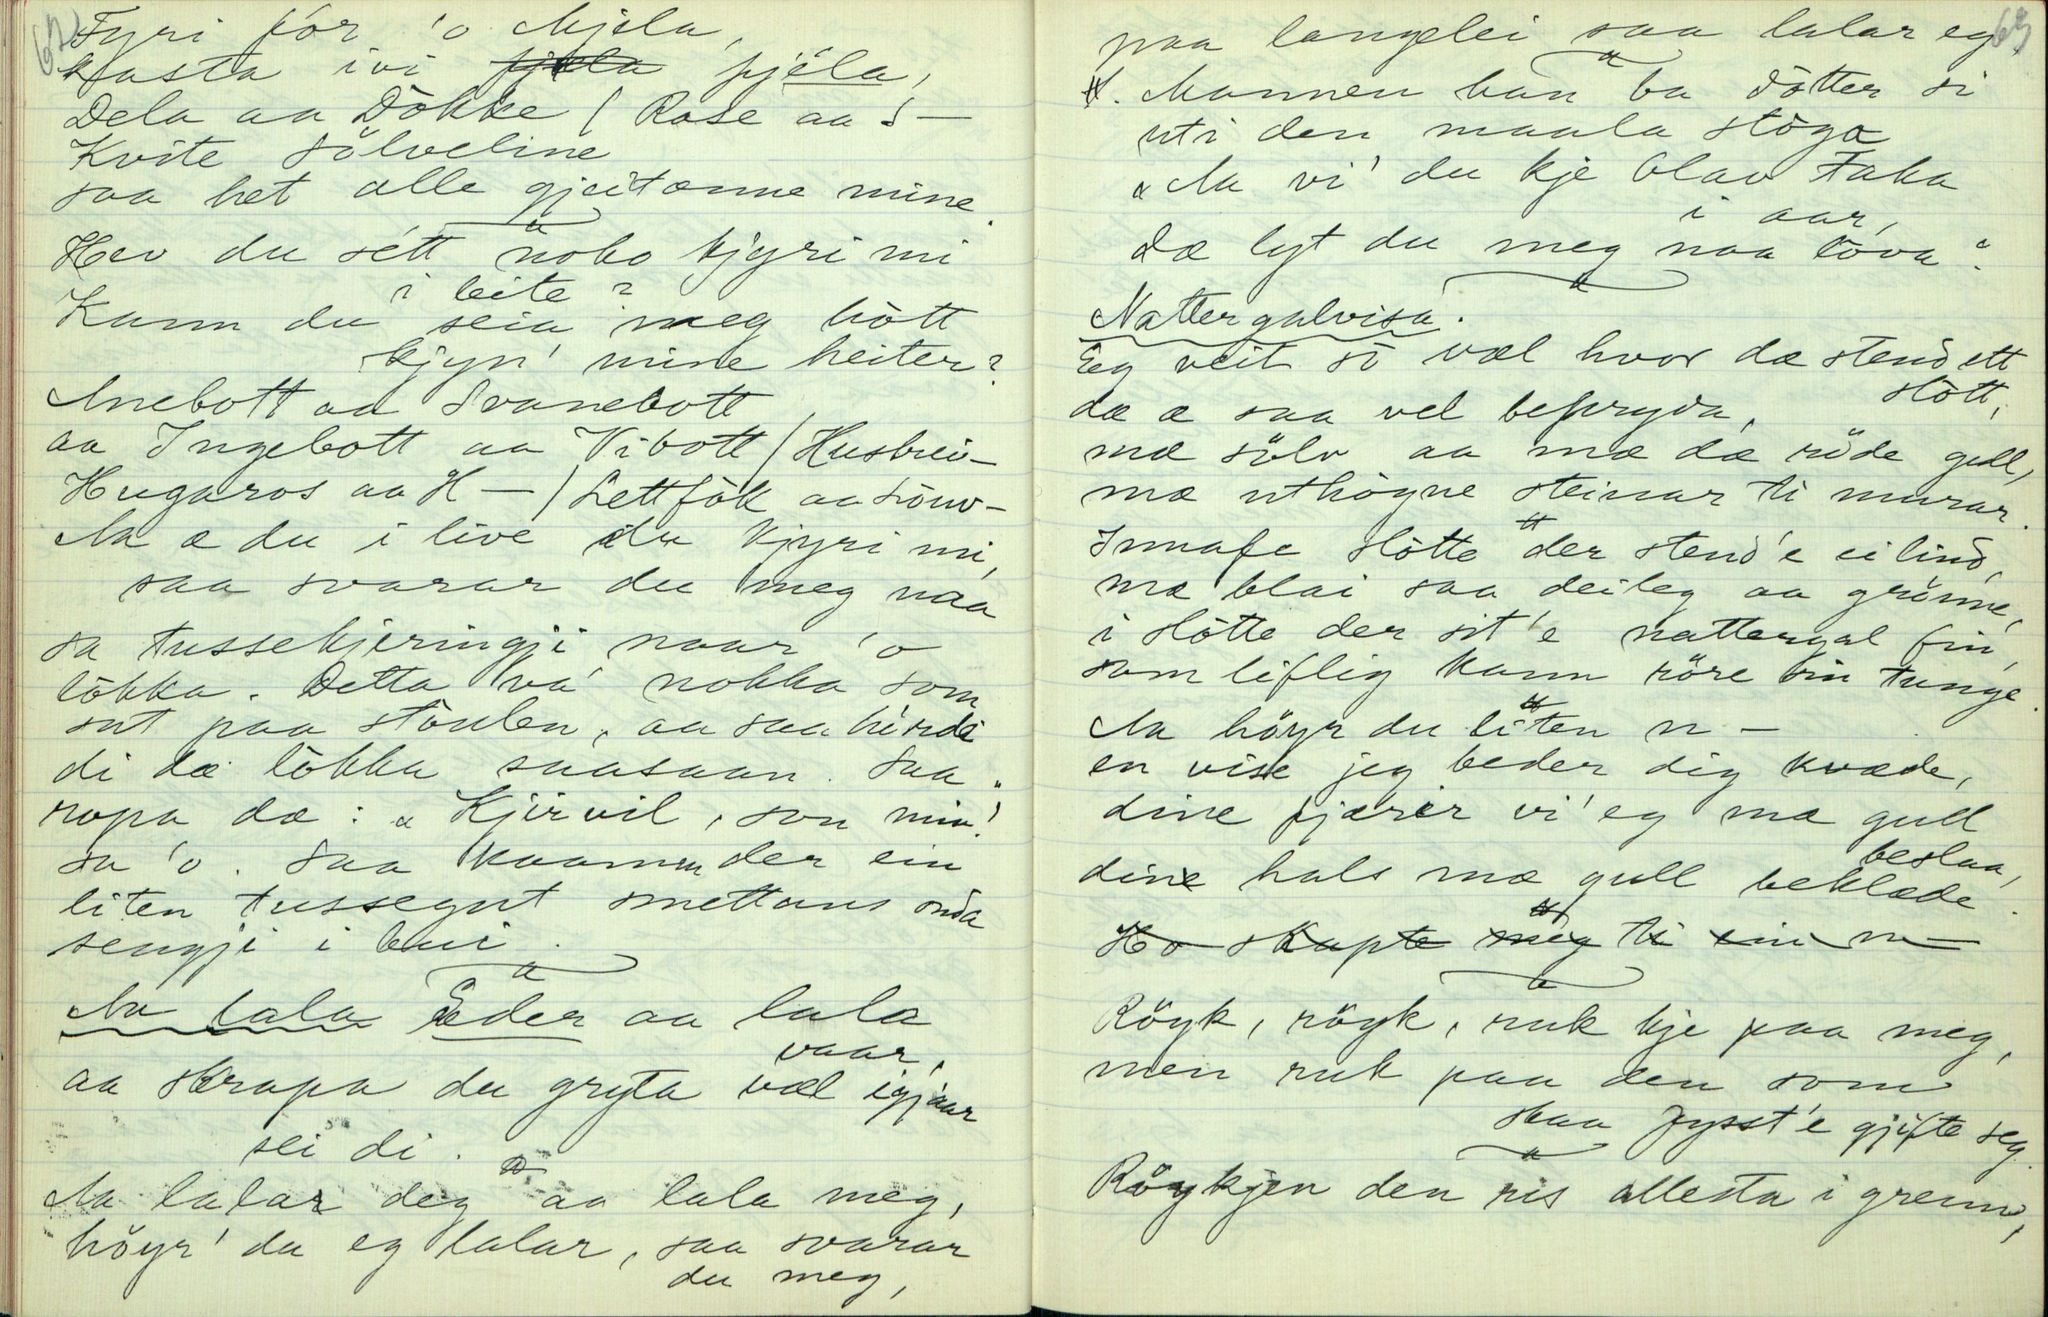 62
Fyri fór 'o Mjela,
kasta ivi fjela fjéla,
Dela aa Dökke / Rose aa S—
Kvite Sölveline
saa het alle gjeitanne mine.
Hev du sétt noko kjyri mi
i beite?
Kann du seia meg hött
kjyri' mine heiter?
Anebott aa Svanebott
aa Ingebott aa Vibott / Husbrei—
Hugaros aa H— / Lettfök aa Snöuv—
Aa æ du i live du kjyri mi,
saa svarar du meg naa
sa tussekjeringji naar 'o
lökka. Detta va' nokka som
sat paa stöulen, aa saa hirde
di dæ lökka saasaan. Saa
ropa dæ: „Kjirvil, son min!"
sa 'o. Saa kaamm der ein
liten tussegut smettans unda
sengji i bui.
Aa lala Eder aa lala
vaar,
aa skrapa du gryta væl igjaar
sei di.
Aa lalar deg aa lala meg,
höyr' du eg lalar, saa svarar
du meg,
63
paa langelei saa lalar eg.
Mannen han ba dotter si
uti den maala stógo
„Aa vi' du kje Olav Faka
i aar,
Dæ lyt du meg naa lova".
Nattergalvisa.
Eg veit so væl hvor dæ stend ett
slott,
dæ æ saa vel bepryda,
mæ sölv aa mæ dæ röde gull,
mæ uthögne steinar ti murar.
Innafe slotte der stend'e ei lind,
mæ blai saa deileg aa grönne,
i slotte der sit'e nattergal fin,
som liflig kann röre sin tunge.
Aa höyr du liten n—
en vise jeg beder dig kvæde,
dine fjærir vi' eg mæ gull
beslaa,
dine hals mæ gull beklæde.
Ho skapte meg ti ein n—
Röyk, röyk, ruk kje paa meg,
men ruk paa den som
skaa fysst'e gjifte seg.
Röykjen den ris allesta i grenn,